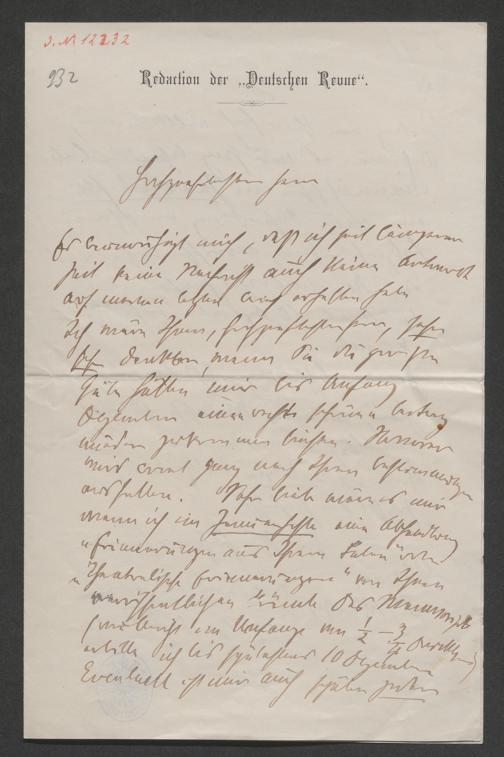 J. N. 12232
932
Redaction der „Deutschen Revue“.
Hochgeehrtester Herr
Es beunruhigt mich, daß ich seit längerer
Zeit keine Nachricht auch keine Antwort
auf meinen letzten erhalten habe
Ich wäre Ihnen, hochgeehrtester Herr, sehr
dankbar, wenn Sie die große
Güte hätten mir bis Anfang
Dezember einen recht schönen Beitrag
zukommen lassen. Honorar
wird ganz nach Ihren Bestimmungen
ausfallen. Sehr lieb wäre es mir
wenn ich im Januarhefte eine Abhandlung
„Erinnerungen aus Ihrem Leben“ oder
„Theatralische Erinnerungen“ von Ihnen
veröffentlichen könnte. Das Manuscript
(vielleicht im Umfange von ½ – ¾ Druckbogen)
erbitte ich bis spätestens 10 Dezember
Eventuell ist mir auch später